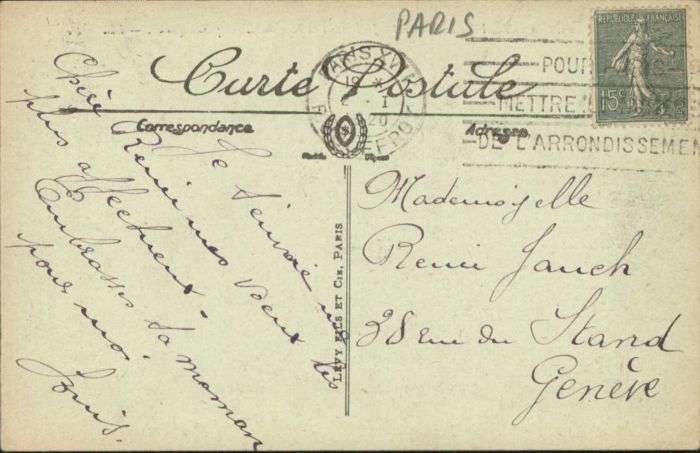 PARIS
RÉPUBLIQUE FRANÇAISE
15c
PARIS XV
19 *
I
20
POUR
METTRE
DE L'ARRONDISSEMEN
Carte Postale
Correspondance
Adresse
Chère Renée Je t'envoie
mes voeux les
plus affectueux.
Embrasse ta maman
pour moi.
Louis.
LEVY FILS ET CIE, PARIS
Mademoiselle
Renée Jauch
38 rue du Stand
Genève